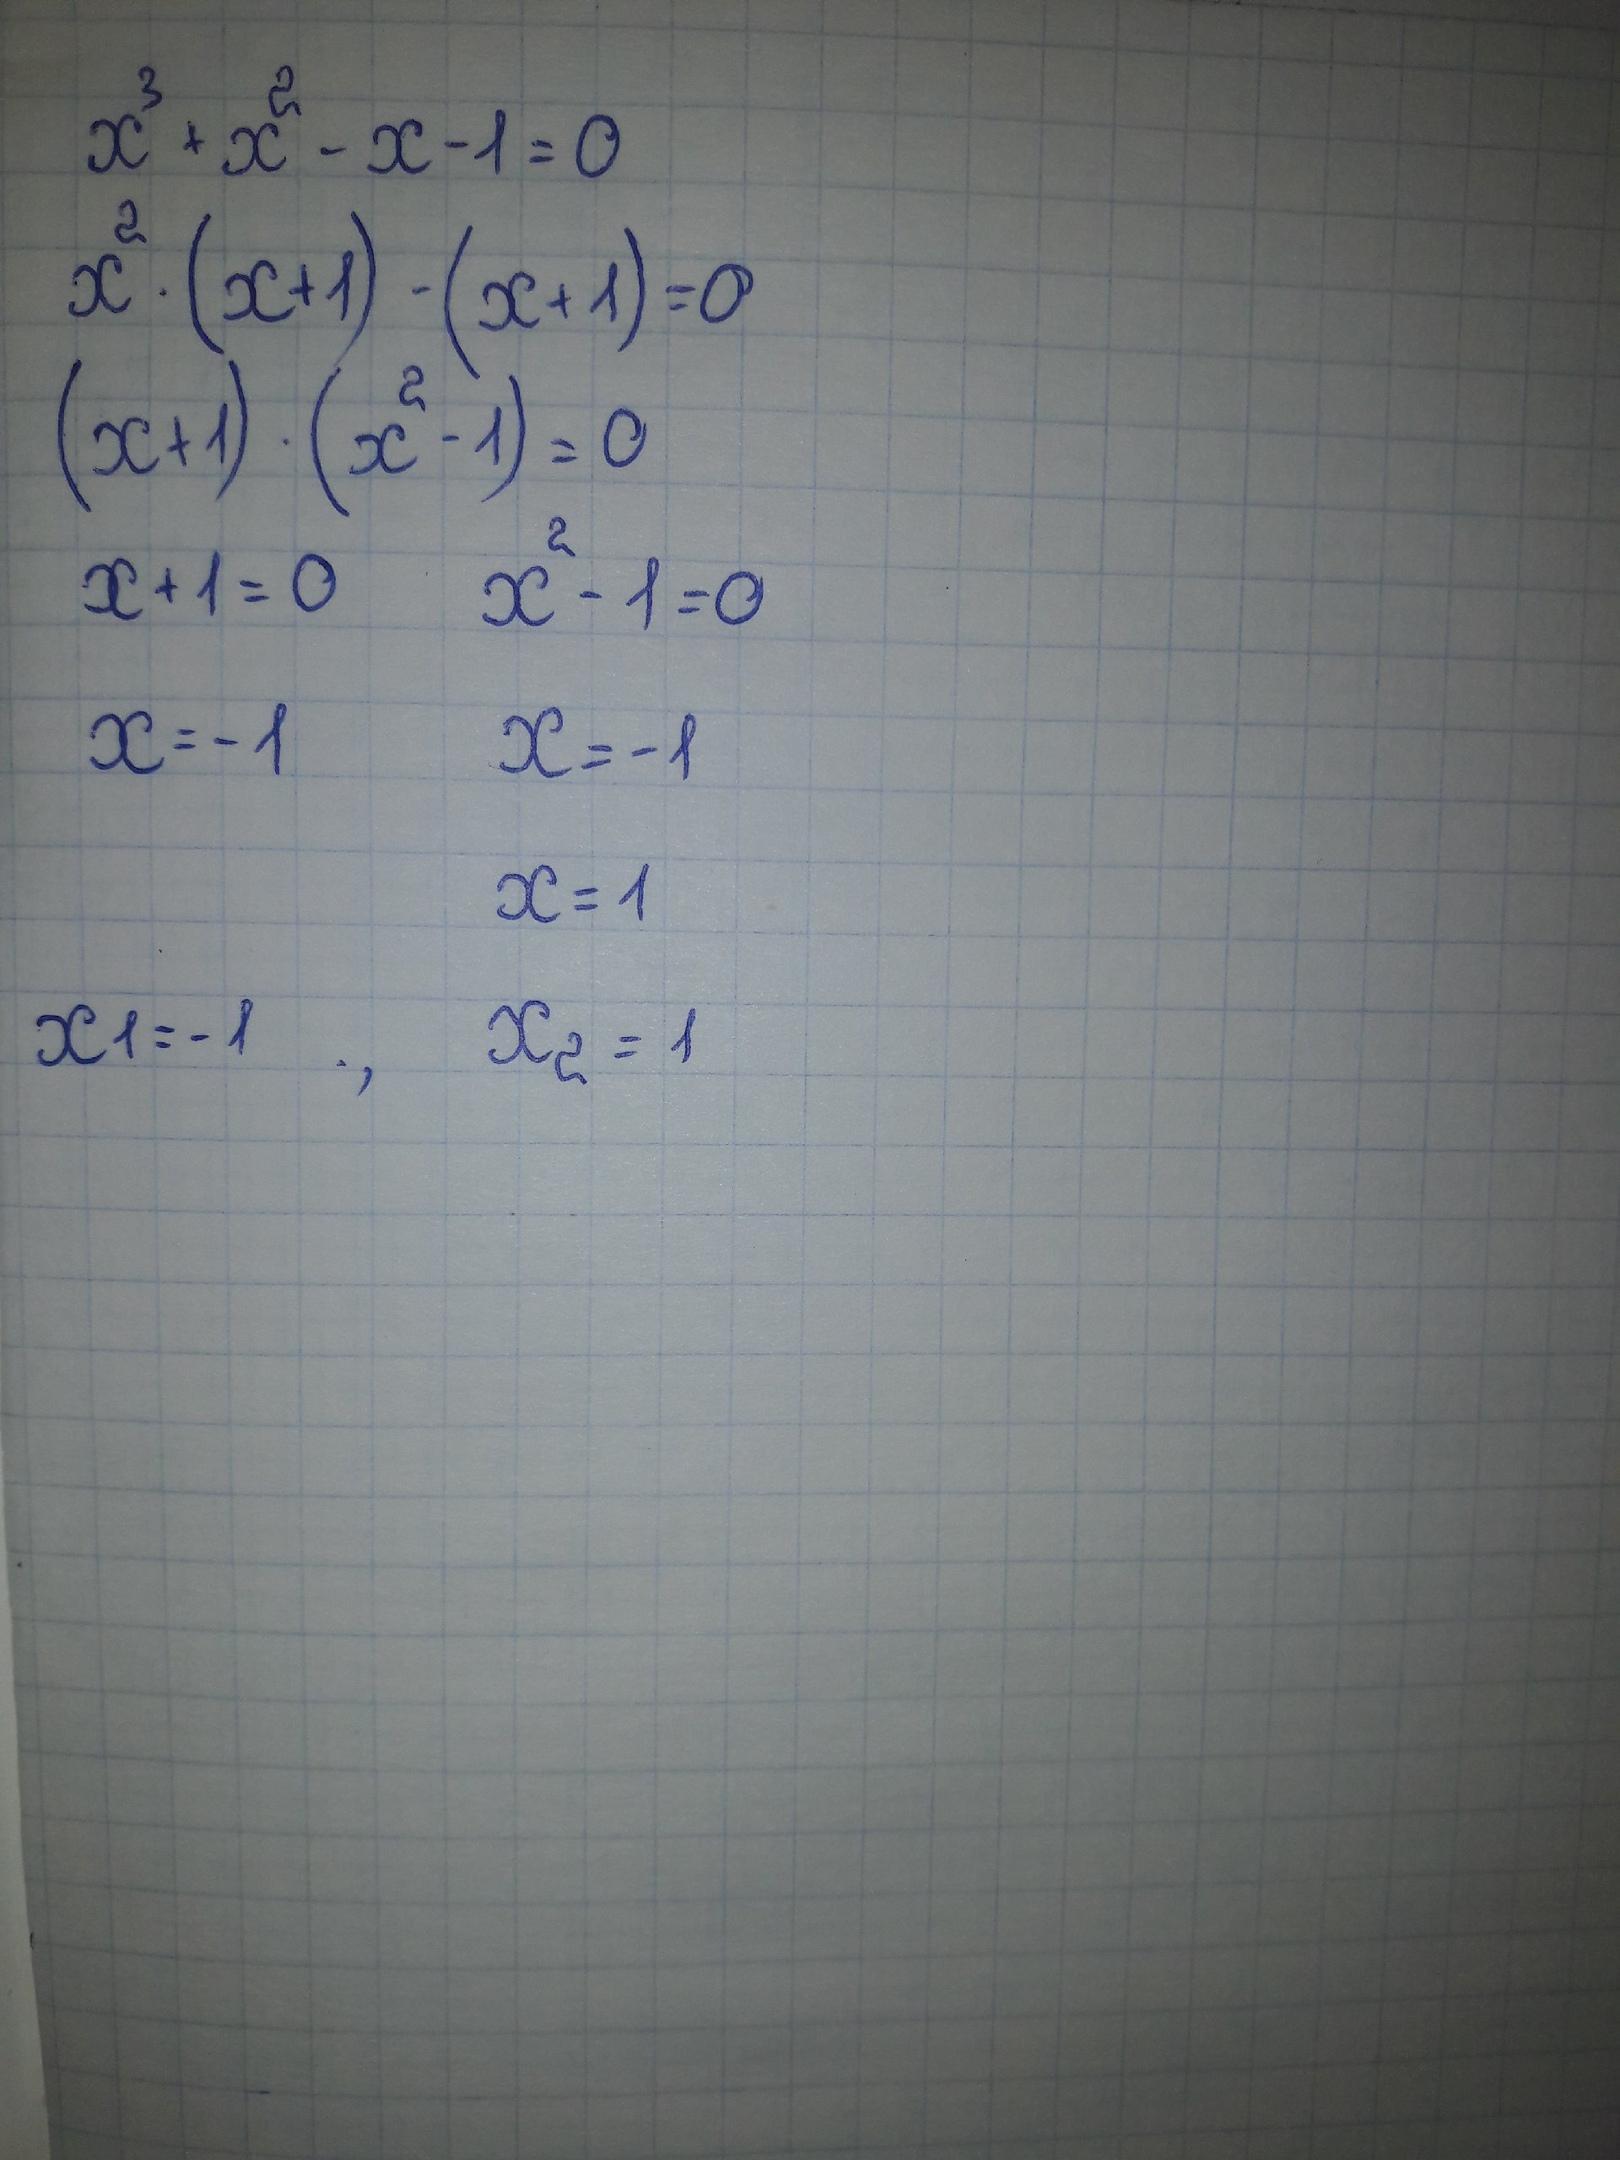 x³ + x² - x - 1 = 0
x² · (x+1) - (x+1) = 0
(x+1) · (x² - 1) = 0
x + 1 = 0 x² - 1 = 0
x = -1 x = -1
x = 1
x1 = -1 , x₂ = 1